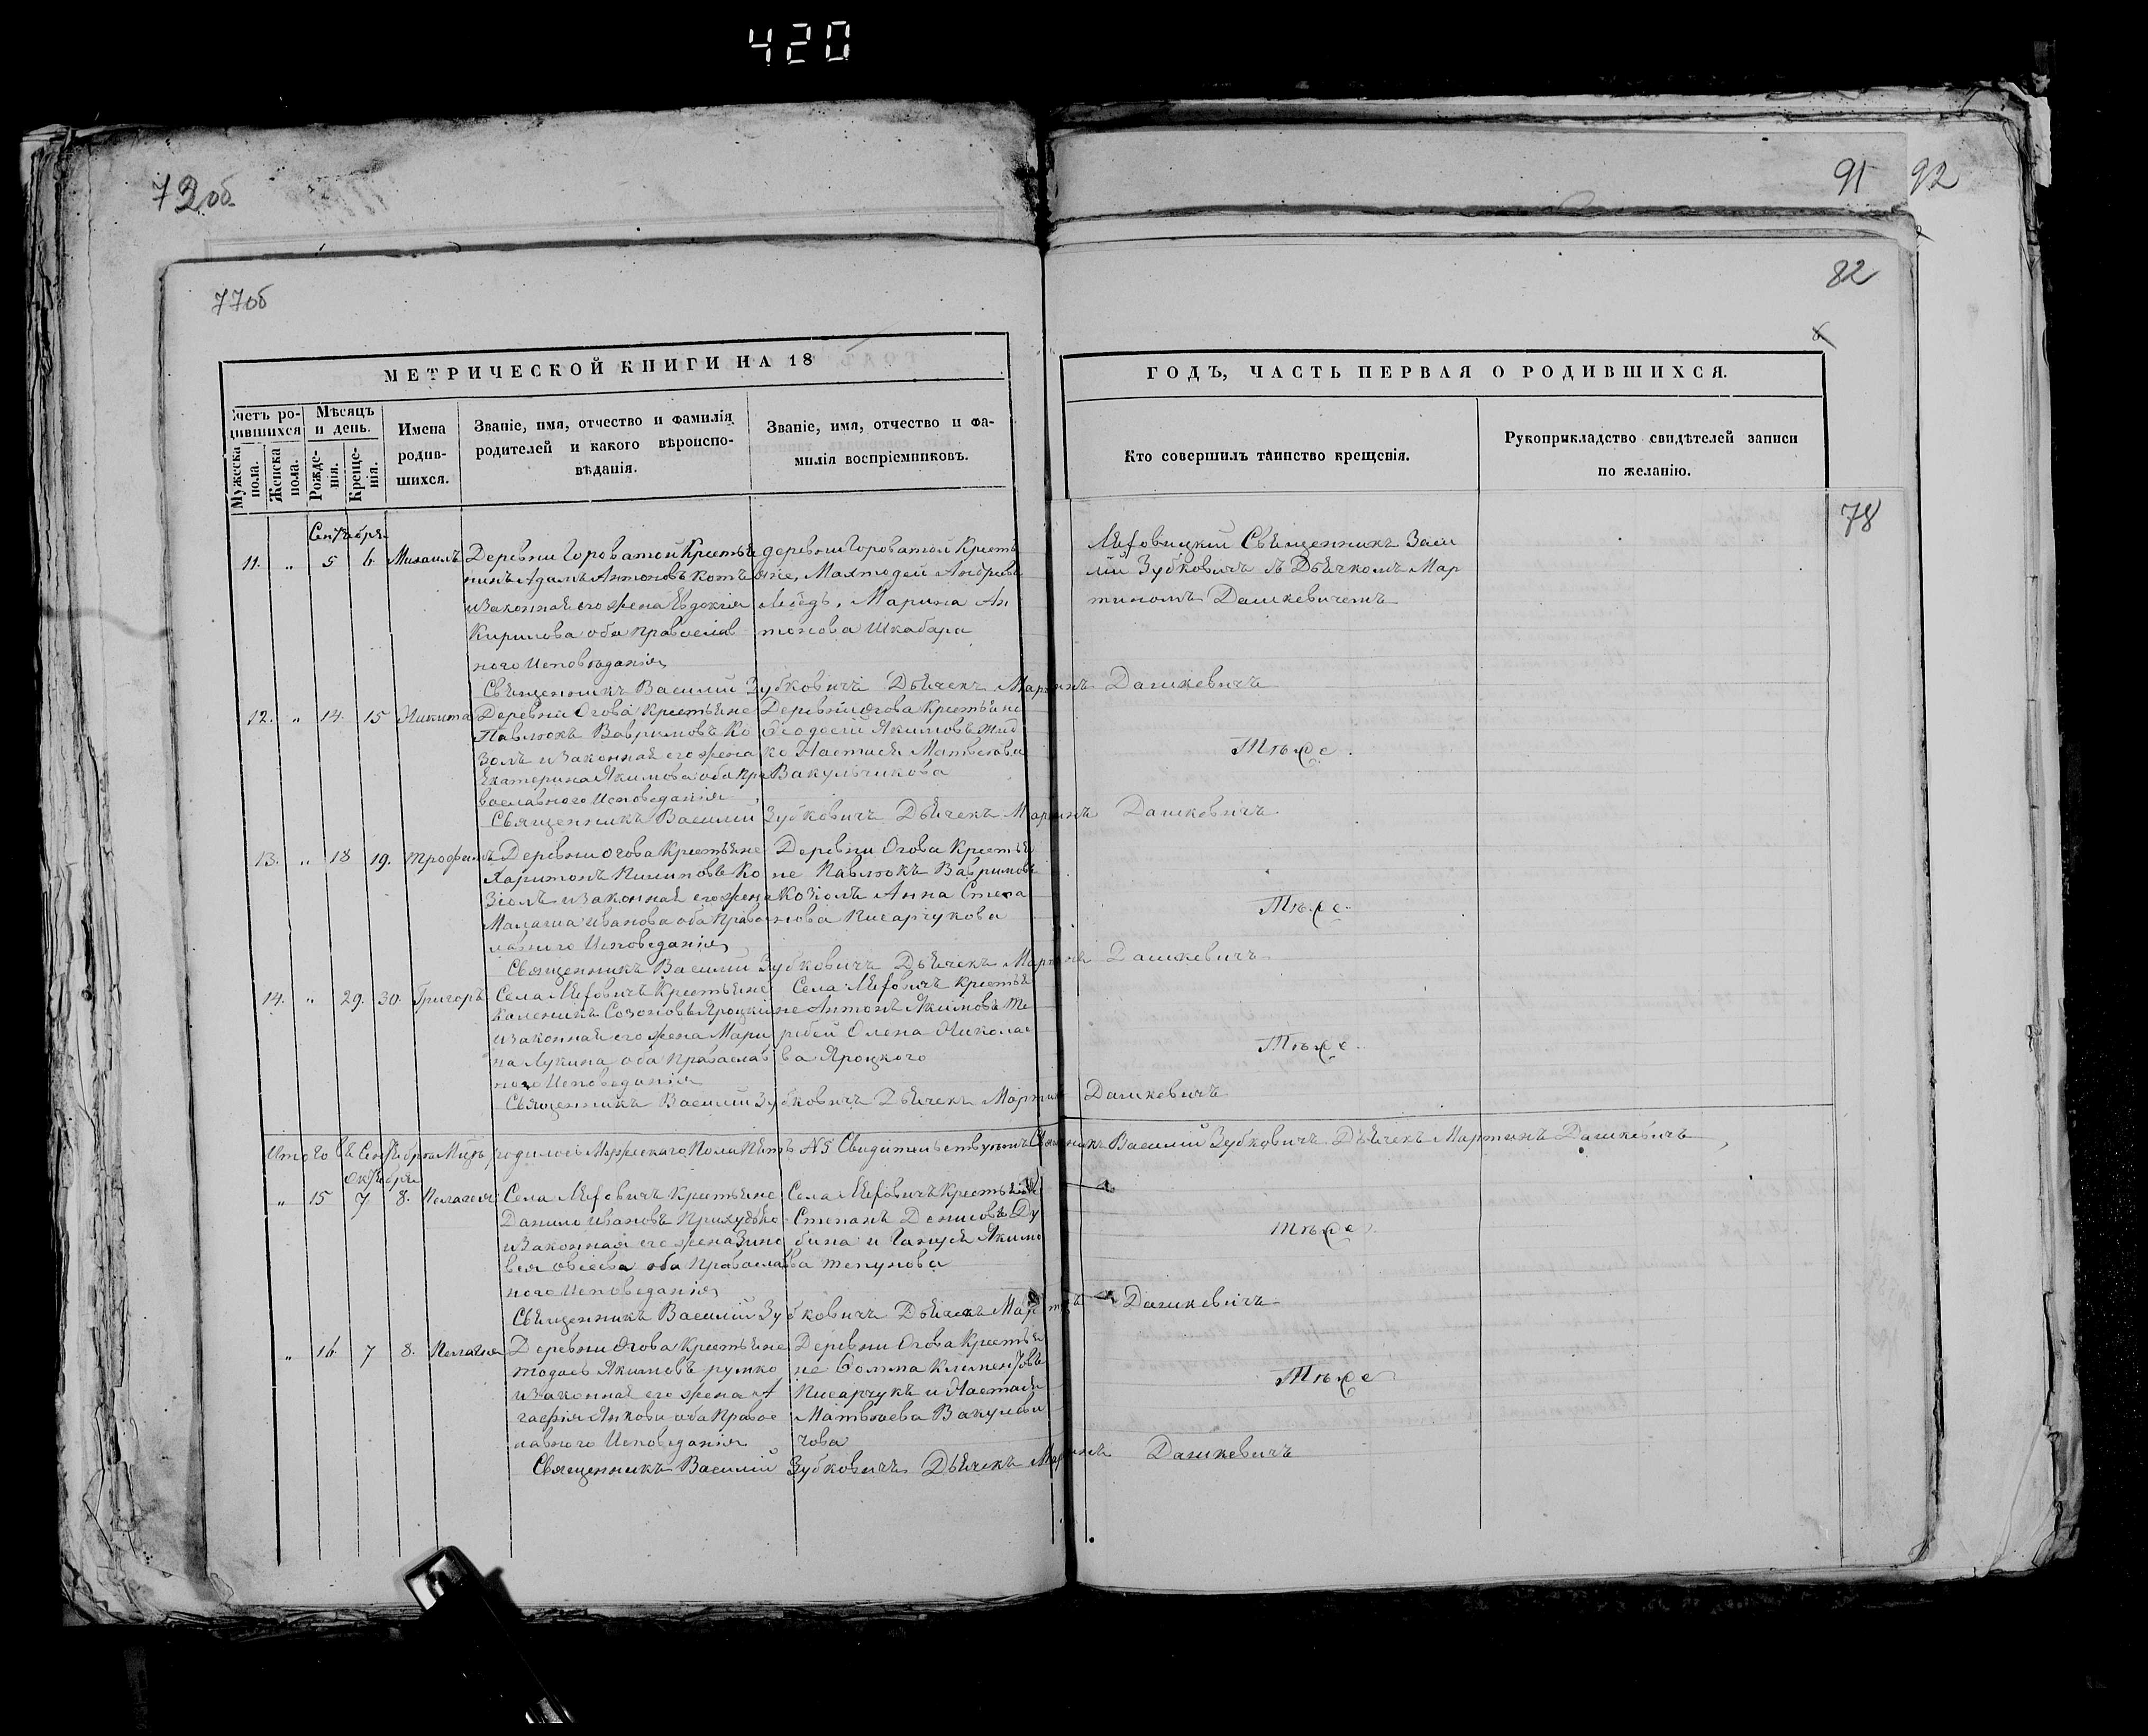 420
72об
91 92
77об
82
МЕТРИЧЕСКОЙ КНИГИ НА 18
ГОДЪ, ЧАСТЬ ПЕРВАЯ О РОДИВШИХСЯ.
Счетъ родившихся
Мужеска пола.
Женска пола.
Мѣсяцъ и день.
Рожденія.
Крещенія.
Имена родившихся.
Званіе, имя, отчество и фамилія
родителей и какого вѣроиспо-
вѣданія.
Званіе, имя, отчество и фа-
милія воспріемниковъ.
Кто совершилъ таинство крещенія.
Рукоприкладство свидѣтелей записи
по желанію.
78
Сентебря
11. " 5 6 Михаилъ
Деревни Гороватой Крестье
нинъ Адамъ Антоновъ
изаконная его жена Евдокия
Кирилова оба православ
ного Исповеданія
деревни Гороватой Крест
Андреевъ
Лебедь, Марина Ан
тонова Шкабара
Священникъ Василий
Зубковичъ съ Дьячкомъ Мар
тиномъ Дашкевичемъ
Священникъ Василий Зубковичъ Дьячекъ Мартинъ Дашкевичъ
12. " 14. 15 Никита
Деревни Огова Крестьяне
Павлюкъ Вавримовъ Ко
золъ изаконная его жена
Екатерина Якимова оба пра
вославного Исповеданія
Деревни Огова Крестьяне
Феодосій Якимовъ Жид
ко Настасья Матвеева
Вакульчикова
Тыже
Священникъ Василий Зубковичъ Дьячекъ Мартинъ Дашковичъ
13. " 18 19. Трофимъ
Деревни Огова Крестьяне
Харитонъ Пилиповъ Ко
зіолъ изаконная его жена
Малаша Иванова оба Правос
лавного Исповеданія
Деревни Огова Крестья
не Павлюкъ Вавримовъ
Козіолъ Анна Степа
нова Писарчукова
Тыже
Священникъ Василий Зубковичъ Дьячекъ Мартинъ Дашкевичъ
14. " 29. 30. Григоръ
изаконная его жена Мари
на Лукина оба Православ
ного Исповеданія
не Антонъ Якимовъ Те
ребей Олена Никола
ва Яроцкого
Тыже
Священникъ Василий Зубковичъ Дьячекъ Мартинъ Дашкевичъ
Итого въ Сентебръ Мцъ родилось Мужескаго Пола Пять №5 Свидительствуютъ Священникъ Василий Зубковичъ Дьячекъ Мартинъ Дашкевичъ
Октебря
" 15 7 8. Пелагея
Данило Ивановъ Прихудько
изаконная его жена Зино
вея Овсеева оба Православ
ного Исповеданія
Степанъ Денисовъ Ду
бина и Гануся Якимо
ва Тепунова
Тыже
Священникъ Василий Зубковичъ Дьячекъ Мартинъ Дашкевичъ
" 16 7 8. Пелагия
Деревни Огова Крестьяне
Якимовъ рутко
изаконная его жена А
гафія Янкова оба Правос
лавного Исповеданія
Деревни Огова Крестья
не Фомма Климентовъ
Писарчукъ и Настася
Матвеева Вакулеви
чова
Тыже
Священникъ Василий Зубковичъ Дьячекъ Мартинъ Дашкевичъ